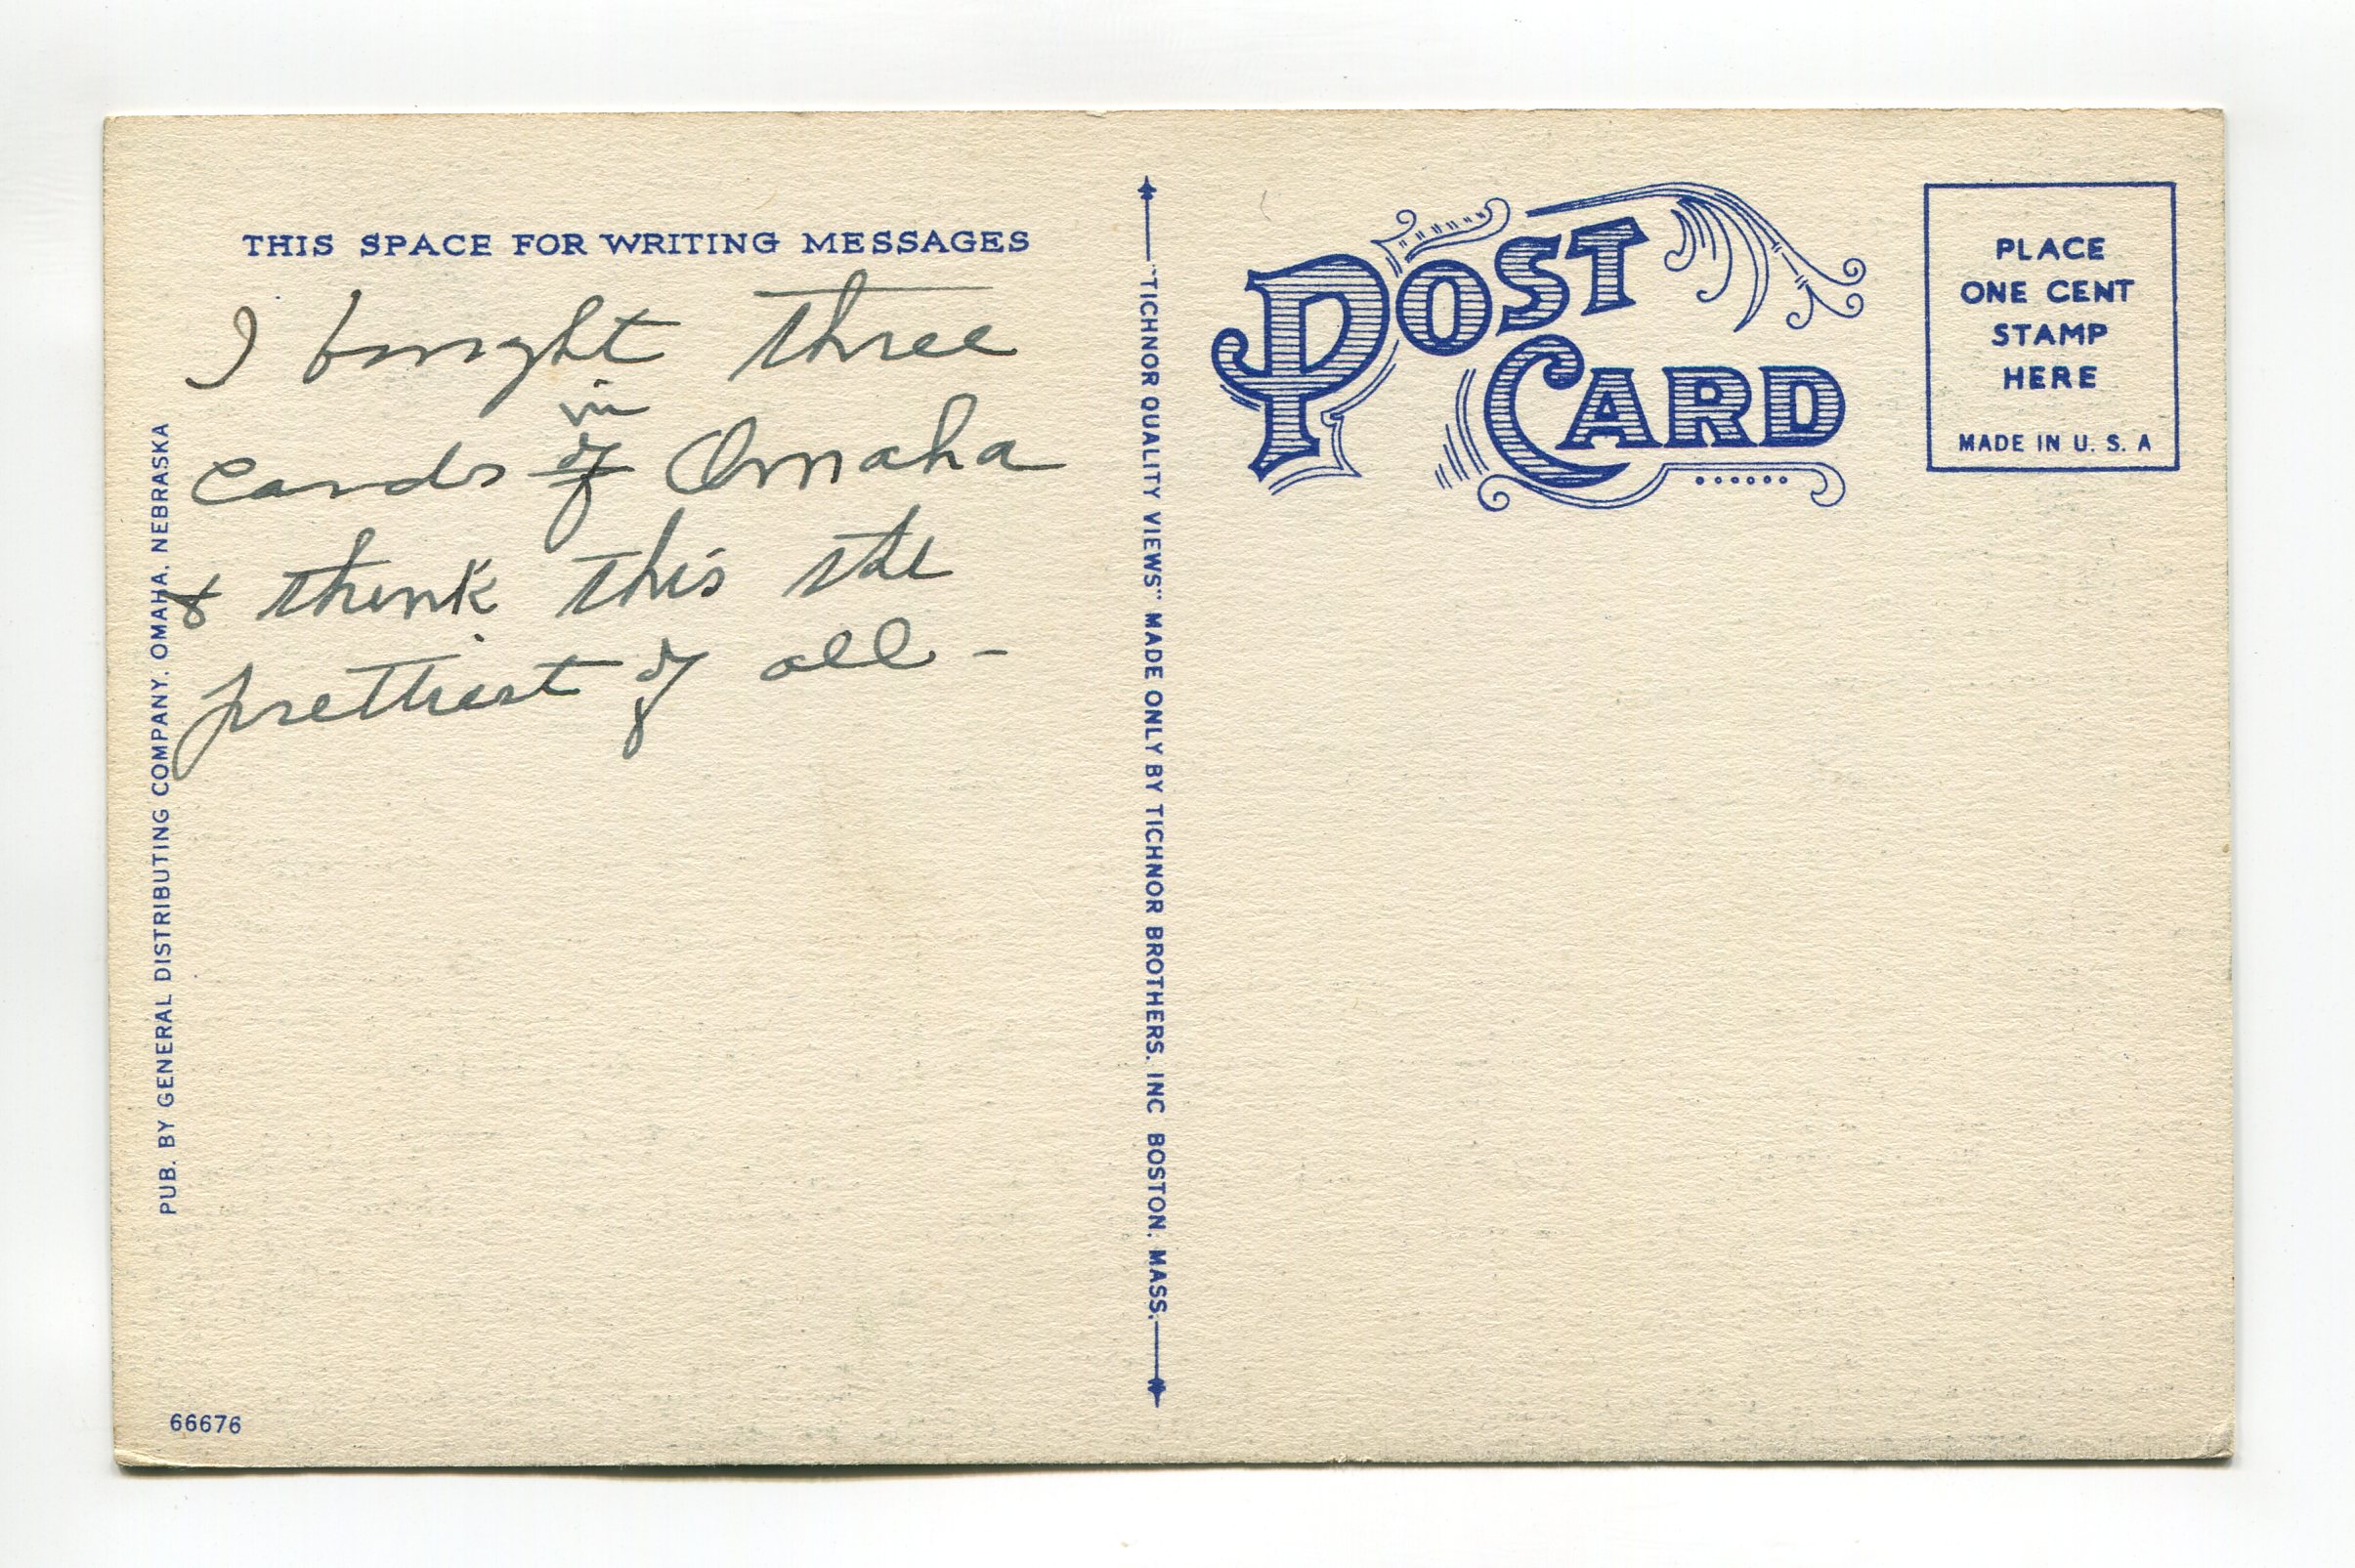 THIS SPACE FOR WRITING MESSAGES
I bought three
in
cards of Omaha
& think this the
prettiest of all -
PUB. BY GENERAL DISTRIBUTING COMPANY, OMAHA, NEBRASKA
66676
"TICHNOR QUALITY VIEWS" MADE ONLY BY TICHNOR BROTHERS. INC BOSTON. MASS.
POST
CARD
PLACE
ONE CENT
STAMP
HERE
MADE IN U. S. A